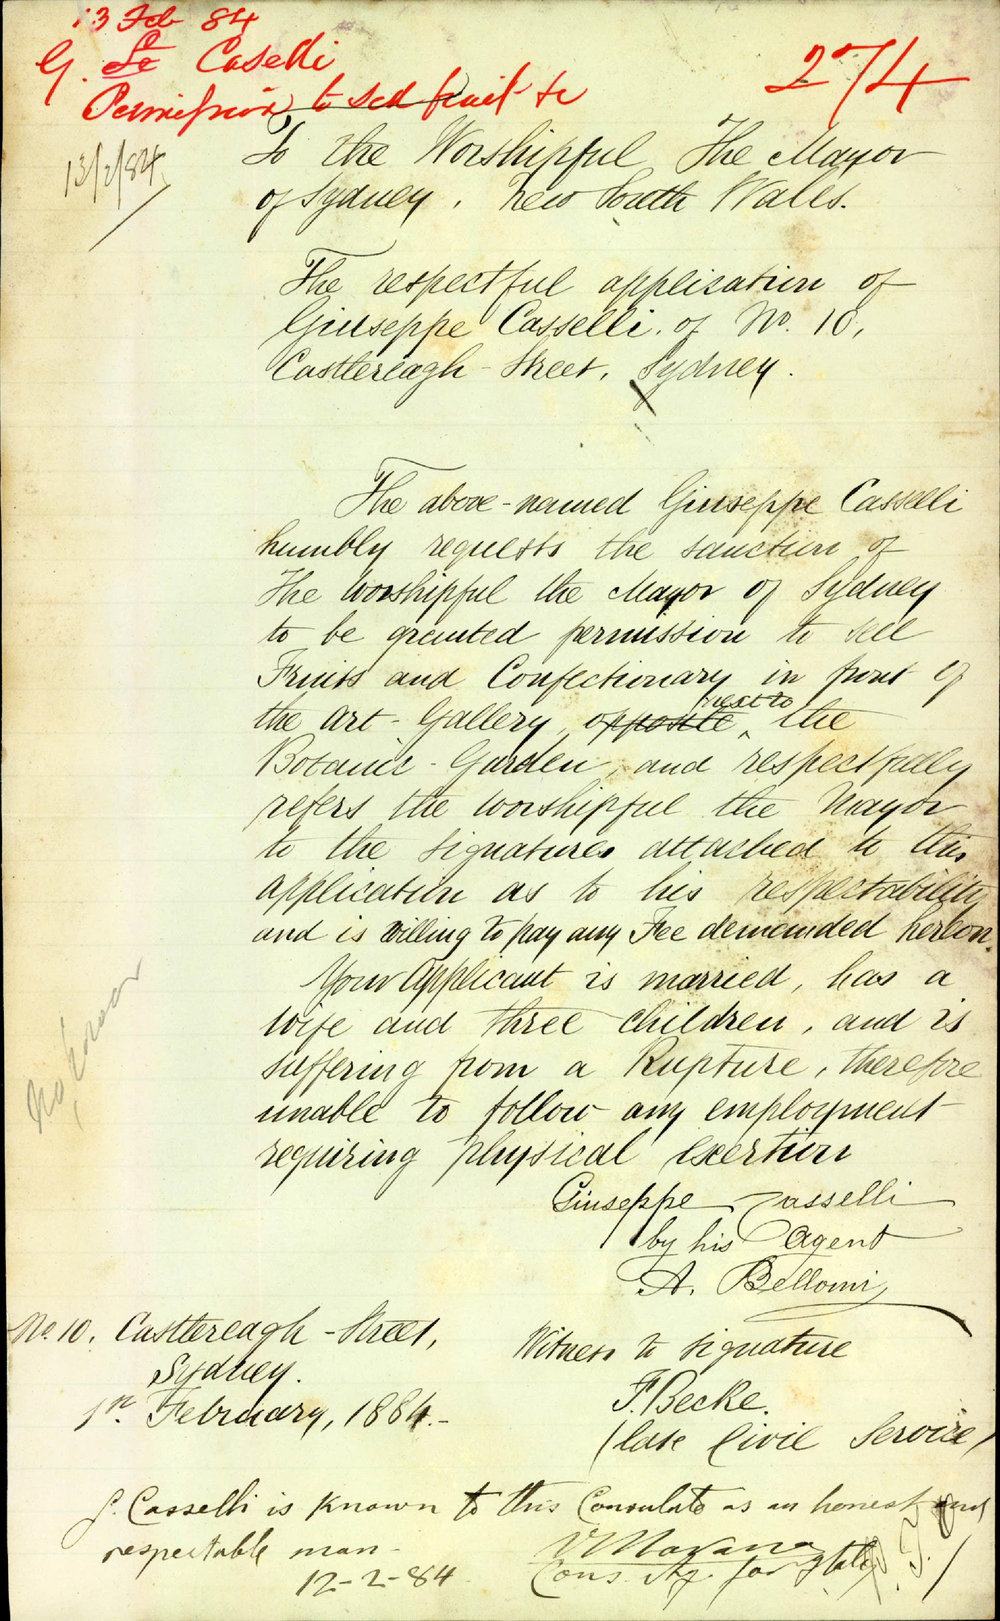 13 Feb 84
G. Caselli
Permission to sell fruit &c
274
13/2/84
To the Worshipful The Mayor
of Sydney, New South Wales.
The respectful application of
Giuseppe Casselli. of No. 10,
Castlereagh-Street, Sydney.
The above-named Giuseppe Casselli
humbly requests the sanction of
The Worshipful the Mayor of Sydney
to be granted permission to sell
Fruits and Confectionary in front of
the Art-Gallery opposite next to the
Botanic-Garden, and respectfully
refers the Worshipful the Mayor
to the signatures attached to this
application as to his respectability
and is willing to pay any Fee demanded hereon.
Your Applicant is married, has a
wife and three children, and is
suffering from a Rupture, therefore
unable to follow any employment
requiring physical exertion
Giuseppe Casselli
by his Agent
A. Bellomi
No. 10, Castlereagh-Street,
Sydney.
February, 1884.-
Witness to signature
F. Becke.
(late Civil Service)
G. Casselli is known to this Consulate as an honest and
respectable man-
12-2-84
V Marano
Cons. Ag. for Italy